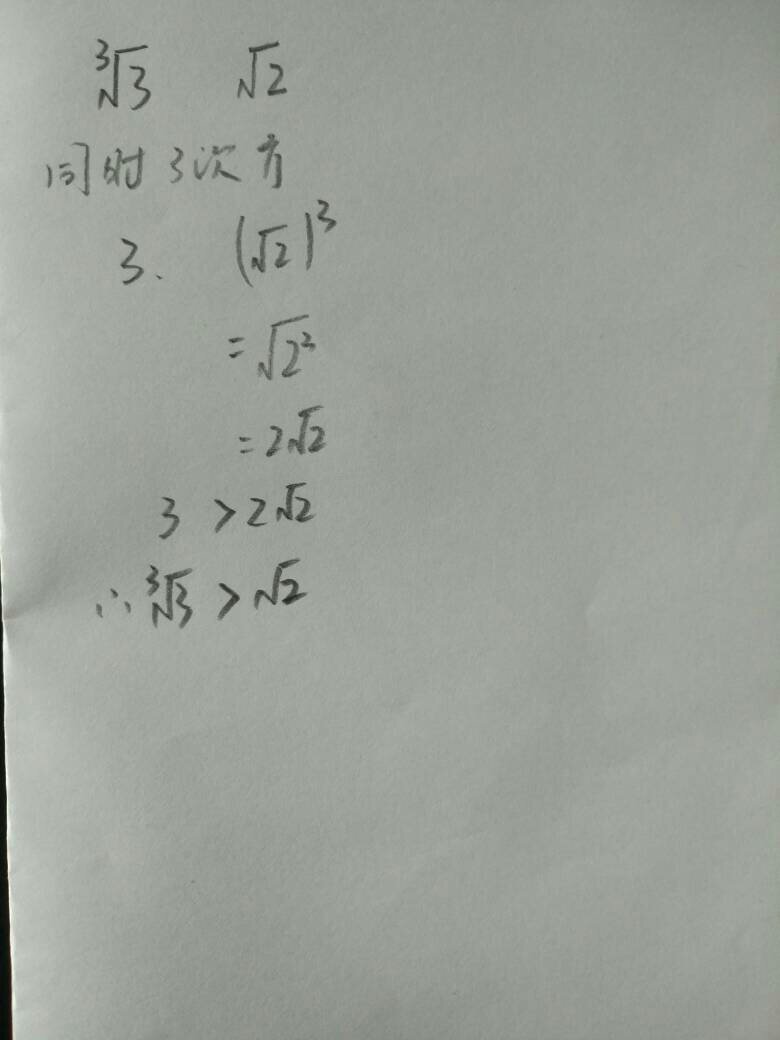 ∛3 √2
同时3次方
3. (√2)³
=√2³
=2√2
3 >2√2
∴∛3 >√2